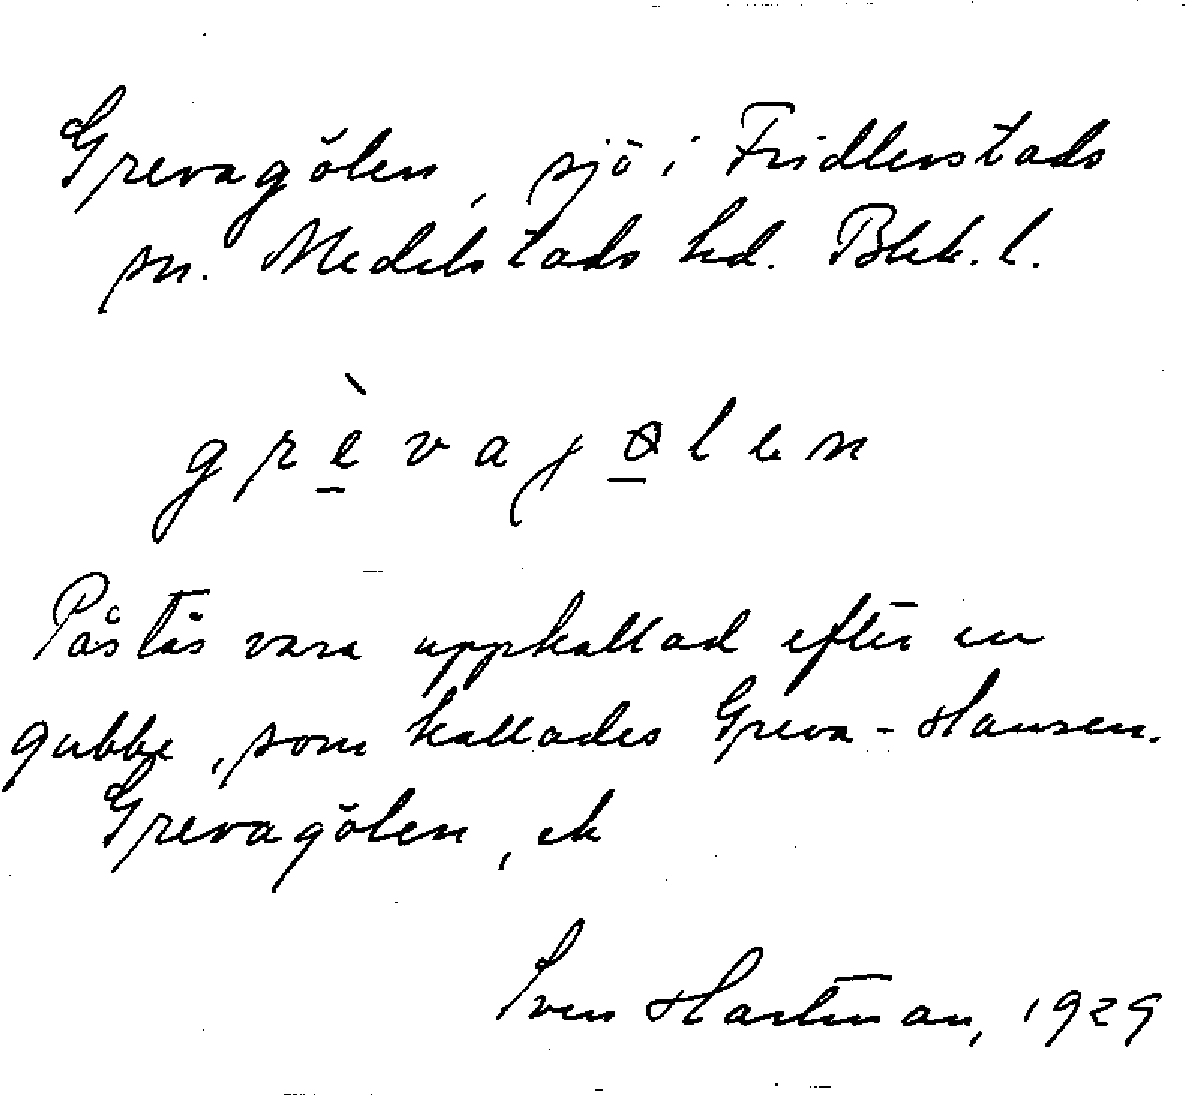 Grevagölen, sjö i Fridlevstads
sn. Medelstads hd. Blek. l.
grèvajɵlen
Påstås vara uppkallad efter en
gubbe, som kallades Greva-Hansen.
Grevagölen, ek
Sven Hartman, 1929